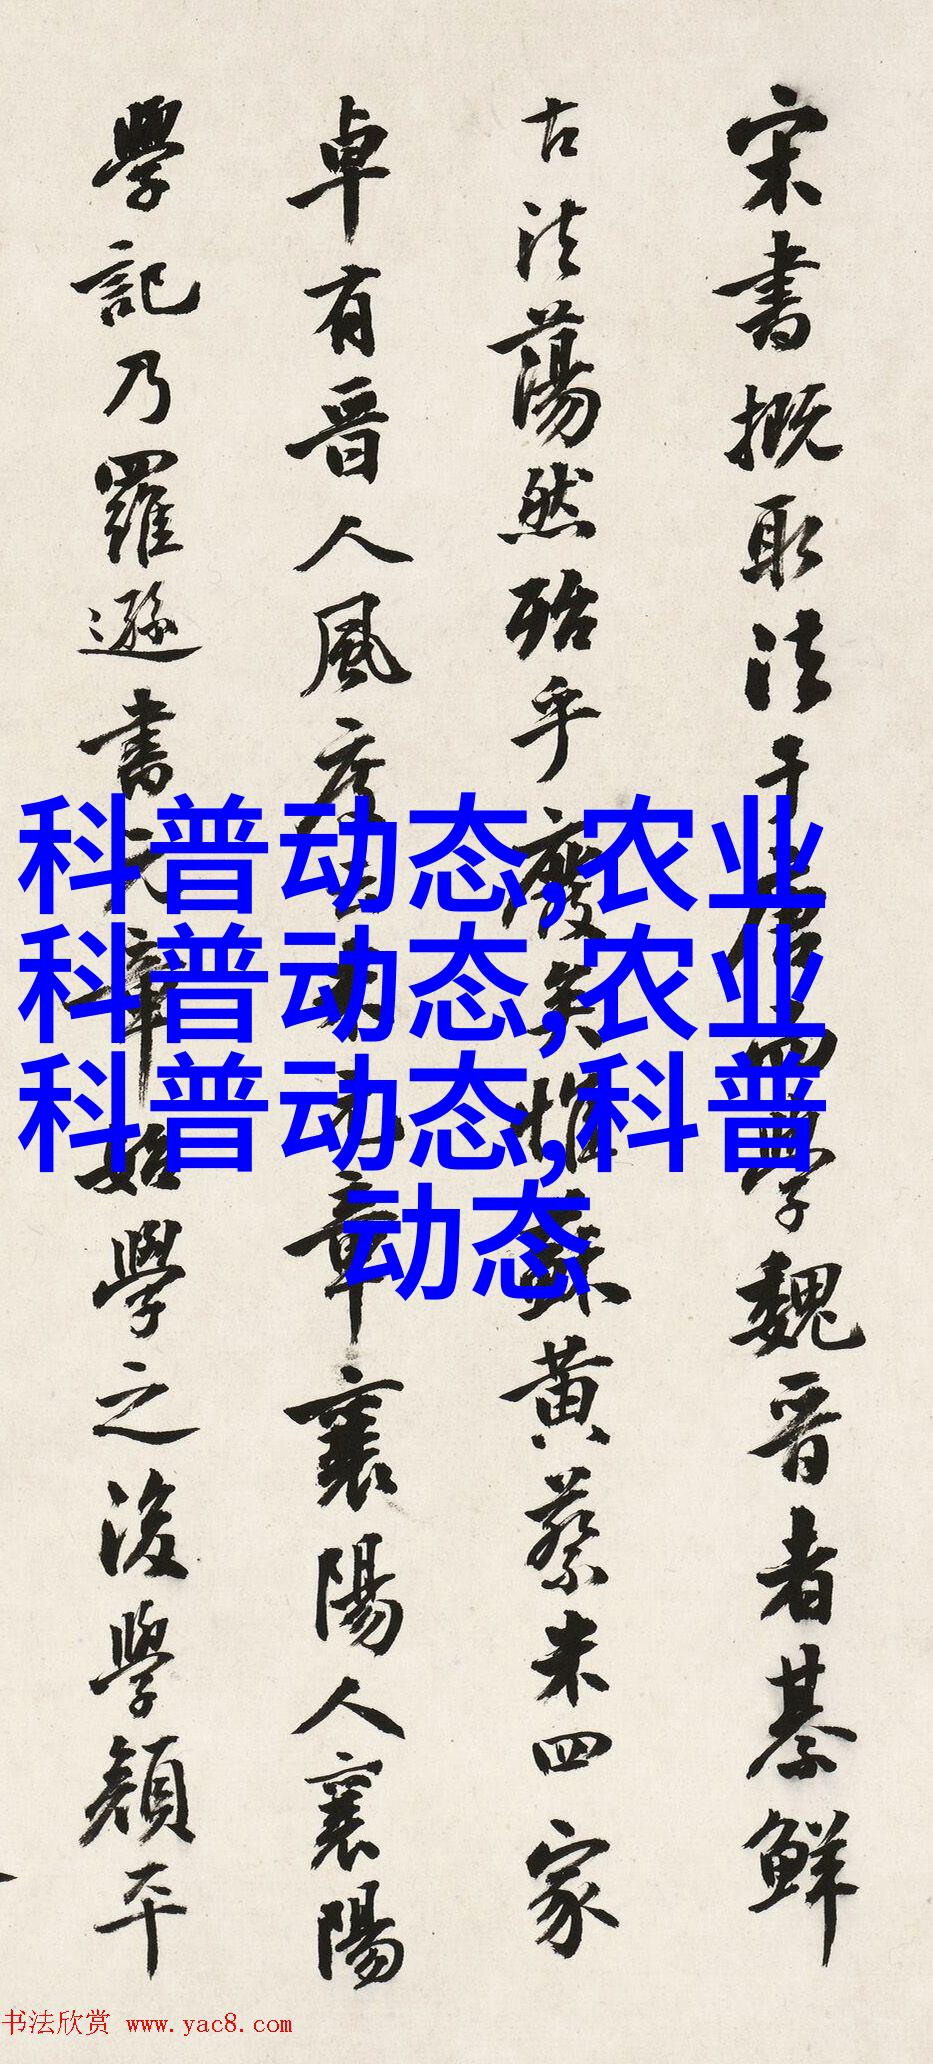 宋書概取法于唐而學魏晋者綦鮮
古法蕩然殆乎廢矣惟蘇黃蔡米四家
卓有晋人風度米元章襄陽人襄陽
學記乃羅遜書元章始學之後學顏平
科普动态,农业
科普动态,农业
科普动态,科普
动态
书法欣赏 www.yac8.com